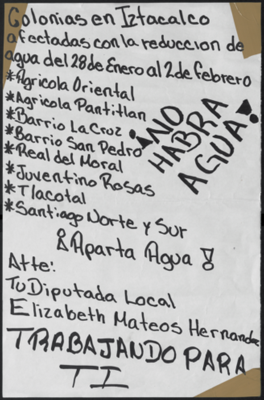 Colonias en Iztacalco
afectadas con la reduccion de
agua del 28 de Enero al 2 de febrero
*Agricola Oriental
*Agricola Pantitlan
*Barrio La Cruz
*Barrio San Pedro
*Real del Moral
*Juventino Rosas
*Tlacotal
*Santiago Norte y Sur
¡NO
HABRA
AGUA!
¡Aparta Agua!
Atte:
Tu Diputada Local
Elizabeth Mateos Hernandez
TRABAJANDO PARA
TI